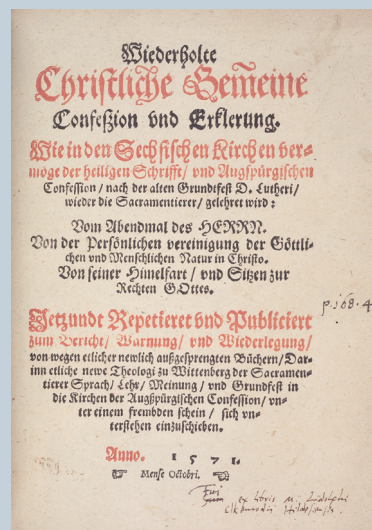 Wiederholte
Christliche Gemeine
Confeßion vnd Erklerung.
Wie in den Sechsischen Kirchen ver-
möge der heiligen Schrifft/ vnd Augspürgischen
Confession/ nach der alten Grundtfest D. Lutheri/
wieder die Sacramentierer/ gelehret wird:
Vom Abendmal des HERRN.
Von der Persönlichen vereinigung der Göttli-
chen vnd Menschlichen Natur in Christo.
Von seiner Himelfart/ vnd Sitzen zur
Rechten GOttes.
p. 168. 4
Jetzundt Repetieret vnd Publiciert
zum Bericht/ Warnung/ vnd Wiederlegung/
von wegen etlicher newlich außgesprengten Büchern/ Dar-
inn etliche newe Theologi zu Wittenberg der Sacramen-
tierer Sprach/ Lehr/ Meinung/ vnd Grundfest in
die Kirchen der Augßpürgischen Confession/ vn-
ter einem frembden schein/ sich vn-
terstehen einzuschieben.
Anno. 1571.
Mense Octobri.
ex libris M.